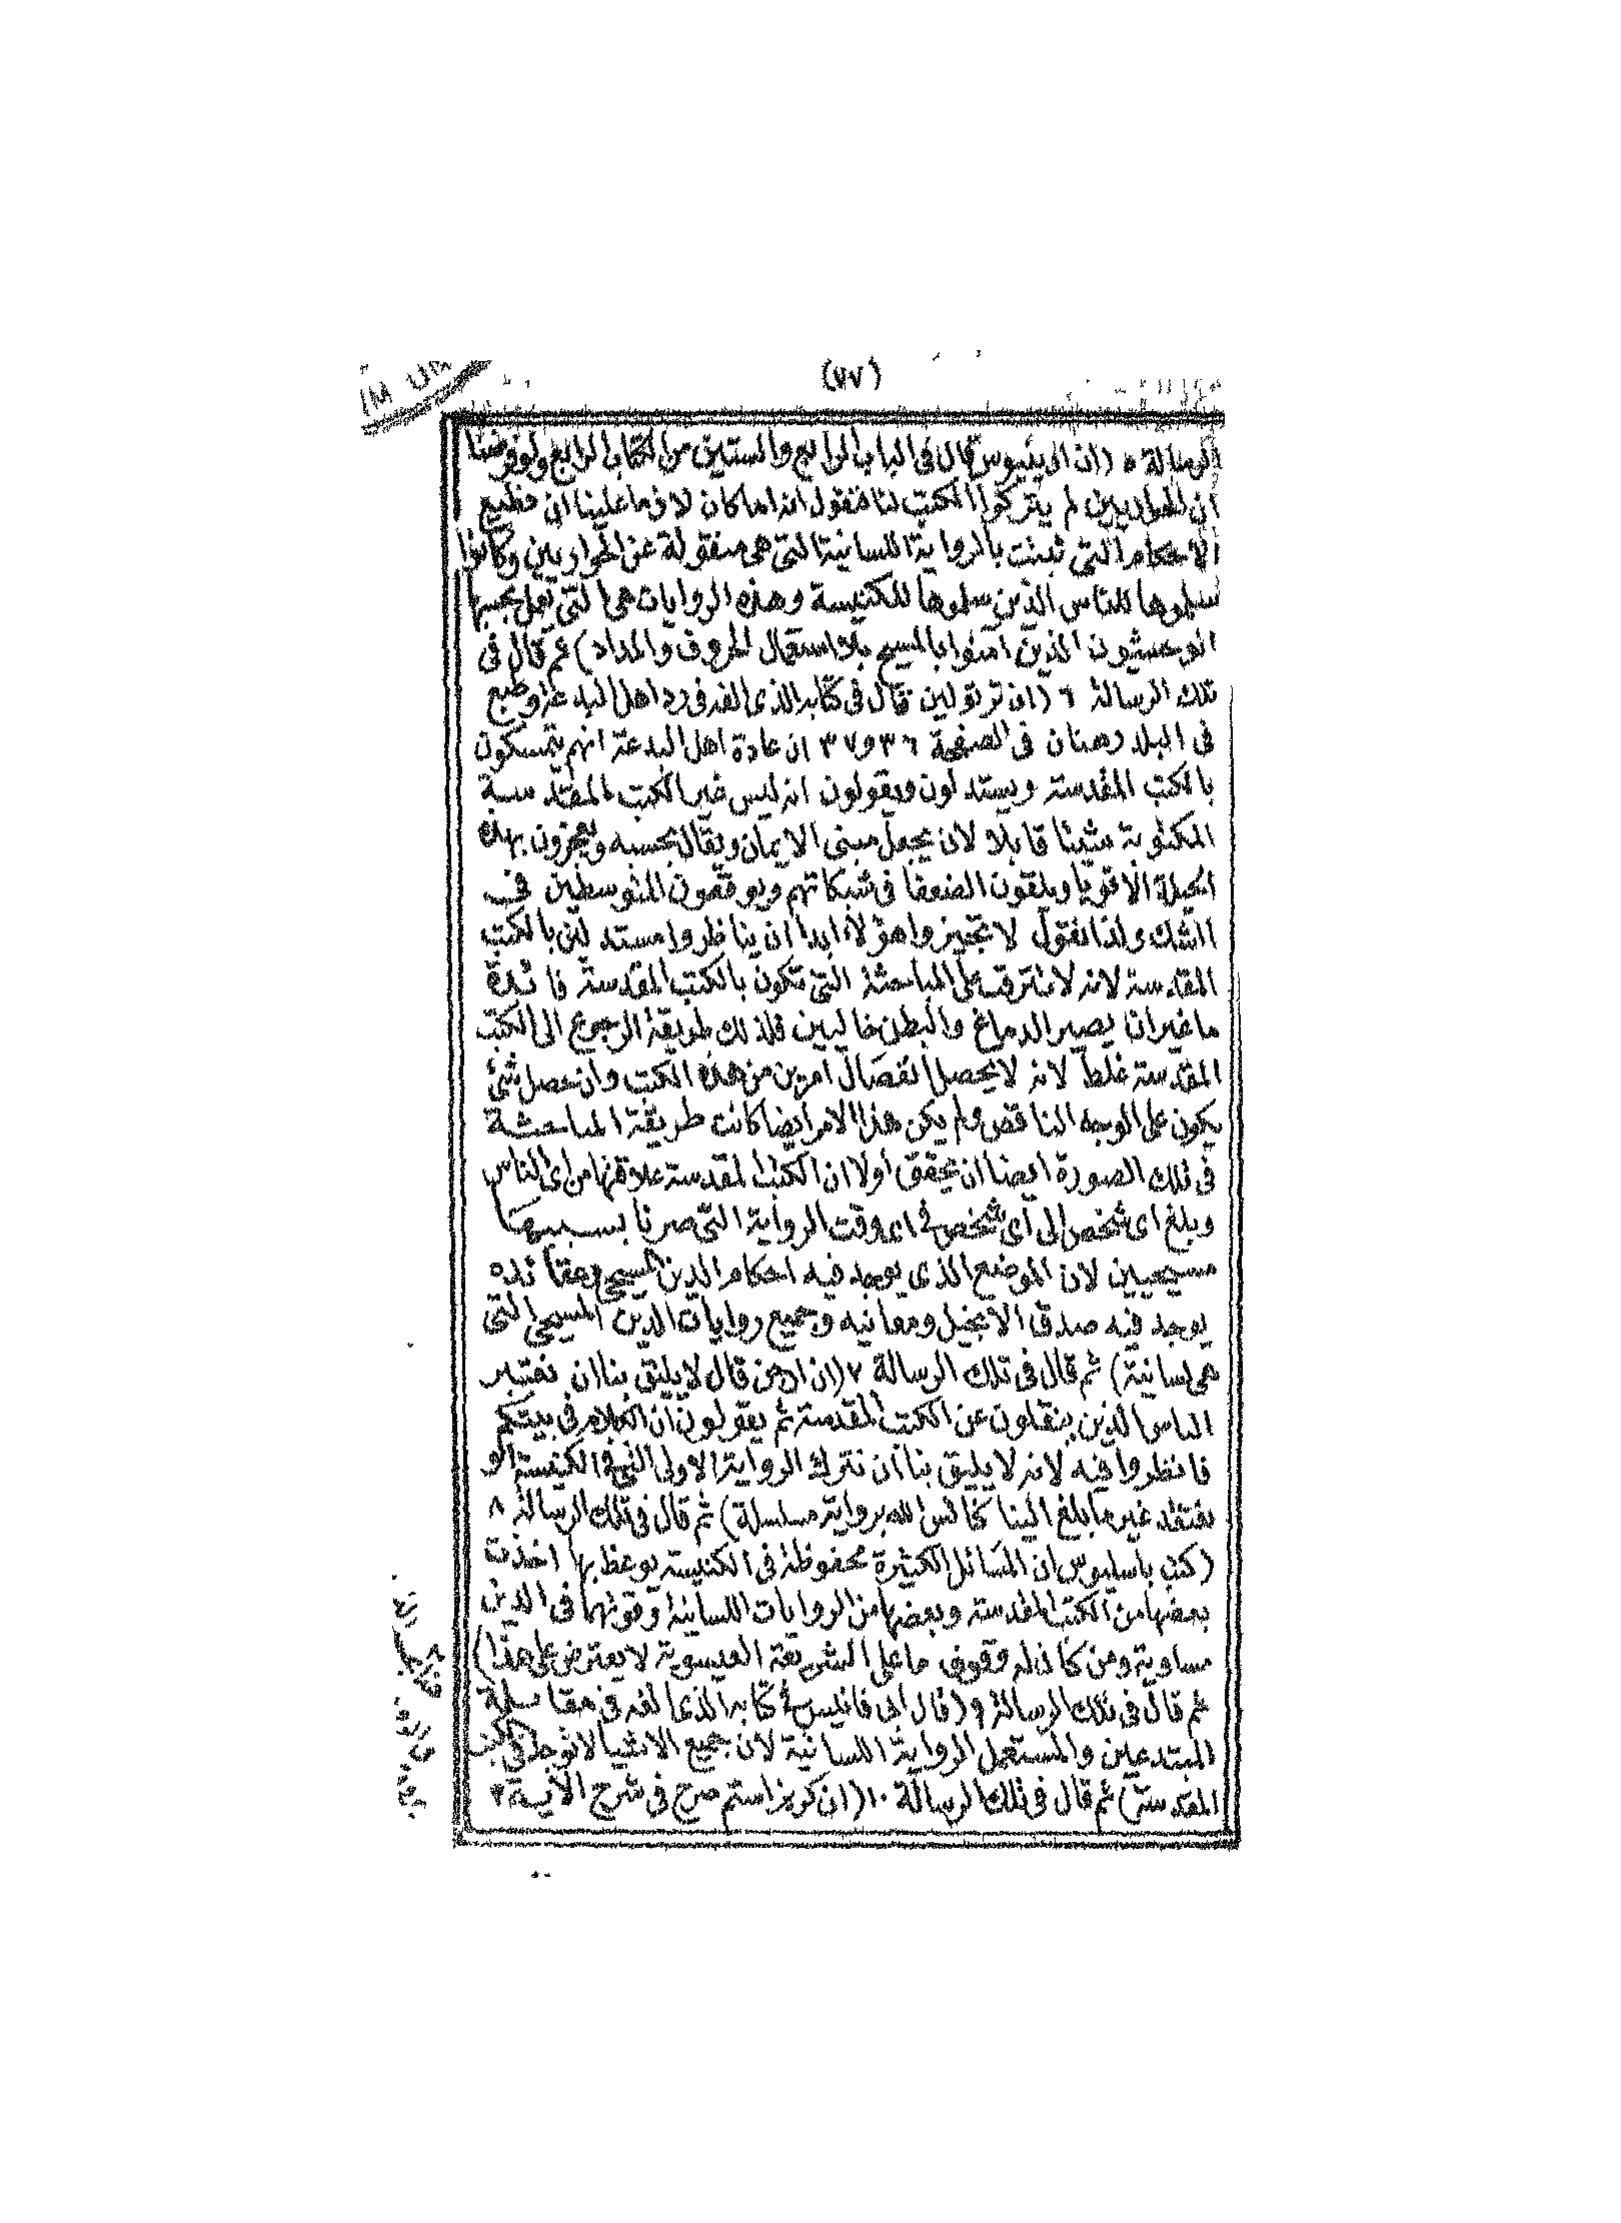 (٧٧)
الرسالة ٥ (ان ارينيوس قال فى الباب الرابع والستين من الكتاب الرابع ولو فرضنا
ان الحواريين لم يتركوا الكتب لنا فنقول انه اما كان لازما علينا ان نطيع
الاحكام التى ثبتت بالرواية اللسانية التى هى منقولة عن الحواريين وكانوا
سلموها للناس الذين سلموها للكنيسة وهذه الروايات هى التى يعمل بحسبها
الوحشيون الذين امنوا بالمسيح بلا استعمال الحروف والمداد) ثم قال فى
تلك الرسالة ٦ (ان ترتولين قال فى كتابه الذى الفه فى رد اهل البدعة وطبع
فى البلد رهنان فى الصفحة ٣٦ و٣٧ ان عادة اهل البدعة انهم يتمسكون
بالكتب المقدسة ويستدلون ويقولون انه ليس غير الكتب المقدسة
المكتوبة شيئا قابلا لان يجعل مبنى الايمان ويقال بحسبه ويعجزون بهذه
الحيلة الاقويا ويلقون الضعفا فى شبكاتهم ويوقعون المتوسطين فى
الشك ولذا نقول لا تجيزوا هؤلاء ابدا ان يناظروا مستدلين بالكتب
المقدسة لانه لا تترتب على المباحثة التى تكون بالكتب المقدسة فائدة
ما غير ان يصير الدماغ والبطن خاليين فلذلك طريقة الرجوع الى الكتب
المقدسة غلط لانه لا يحصل انفصال امر من هذه الكتب وان حصل شئ
يكون على الوجه الناقص ولو لم يكن هذا الامر ايضا كانت طريقة المباحثة
فى تلك الصورة ايضا ان يحقق اولا ان الكتب المقدسة علاقتها من اى الناس
وبلغ اى شخص الى اى شخص فى اى وقت الرواية التى صرنا بسببها
مسيحيين لان الموضع الذى يوجد فيه احكام الدين المسيحى وعقائده
يوجد فيه صدق الانجيل ومعانيه وجميع روايات الدين المسيحى التى
هى لسانية) ثم قال فى تلك الرسالة ٧ (ان ارجن قال لا يليق بنا ان نعتبر
الناس الذين ينقلون عن الكتب المقدسة ثم يقولون ان الكلام فى بيتكم
فانظروا فيه لانه لا يليق بنا ان نترك الرواية الاولى التى فى الكنيسة او
نعتقد غير ما بلغ الينا كنائس الله برواية مسلسلة) ثم قال فى تلك الرسالة ٨
(كتب باسليوس ان المسائل الكثيرة محفوظة فى الكنيسة يوعظ بها اخذت
بعضها من الكتب المقدسة وبعضها من الروايات اللسانية وقوتهما فى الدين
مساوية ومن كان له وقوف ما على الشريعة العيسوية لا يعترض على هذا)
ثم قال فى تلك الرسالة ٩ (قال ابى فانيس فى كتابه الذى الفه فى مقابلة
المبتدعين والمستعمل الرواية اللسانية لان جميع الاشيا لا توجد فى الكتب
المقدسة) ثم قال فى تلك الرسالة ١٠ (ان كريزاستم صرح فى شرح الآية ٢